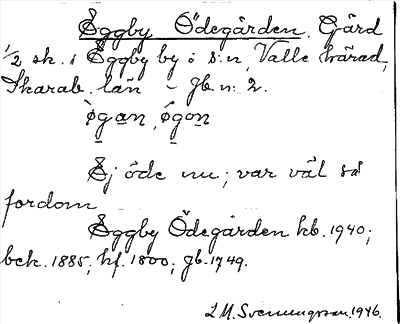 Eggby Ödegården. Gård
1/2 sk. i Eggby by o s:n, Valle härad,
Skarab. län - Jb. n: 2.
øgan, øgon
Ej öde nu; var väl så
fordom
Eggby Ödegården kb. 1940;
bek. 1885, hf. 1800; jb. 1749.
L M. Svenungsson. 1946.